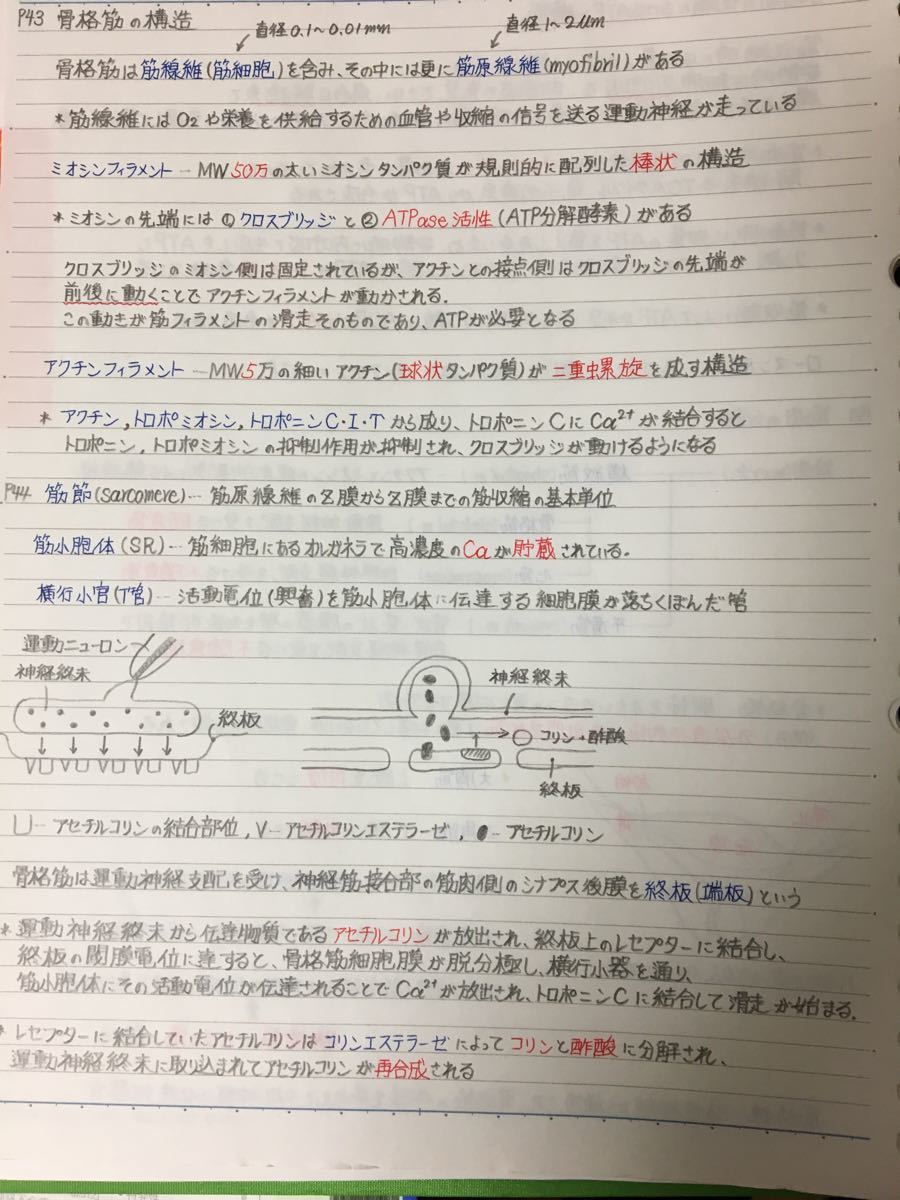 P43 骨格筋の構造
直径0.1~0.01mm
直径1~2μm
骨格筋は筋線維(筋細胞)を含み、その中には更に筋原線維(myofibril)がある
*筋線維にはO2や栄養を供給するための血管や収縮の信号を送る運動神経が走っている
ミオシンフィラメント--MW50万の太いミオシンタンパク質が規則的に配列した棒状の構造
*ミオシンの先端には①クロスブリッジと②ATPase活性(ATP分解酵素)がある
クロスブリッジのミオシン側は固定されているが、アクチンとの接点側はクロスブリッジの先端が
前後に動くことでアクチンフィラメントが動かされる.
この動きが筋フィラメントの滑走そのものであり、ATPが必要となる
アクチンフィラメント--MW5万の細いアクチン(球状タンパク質)が二重虫累旋を成す構造
*アクチン,トロポミオシン,トロポニンC・I・Tから成り、トロポニンCにCa²⁺が結合すると
トロポニン,トロポミオシンの抑制作用が抑制され、クロスブリッジが動けるようになる
P44 筋節(sarcomere)--筋原線維のZ膜からZ膜までの筋収縮の基本単位
筋小胞体(SR)--筋細胞にあるオルガネラで高濃度のCaが貯蔵されている.
横行小官(T管)--活動電位(興奮)を筋小胞体に伝達する細胞膜が落ちくぼんだ管
運動ニューロン
神経終末
終板
神経終末
コリン+酢酸
終板
凵--アセチルコリンの結合部位,V--アセチルコリンエステラーゼ,●--アセチルコリン
骨格筋は運動神経支配を受け、神経筋接合部の筋肉側のシナプス後膜を終板(端板)という
*運動神経終末から伝達物質であるアセチルコリンが放出され、終板上のレセプターに結合し、
終板の閾膜電位に達すると、骨格筋細胞膜が脱分極し、横行小器を通り、
筋小胞体にその活動電位が伝達されることでCa²⁺が放出され、トロポニンCに結合して滑走が始まる.
*レセプターに結合していたアセチルコリンはコリンエステラーゼによってコリンと酢酸に分解され、
運動神経終末に取り込まれてアセチルコリンが再合成される